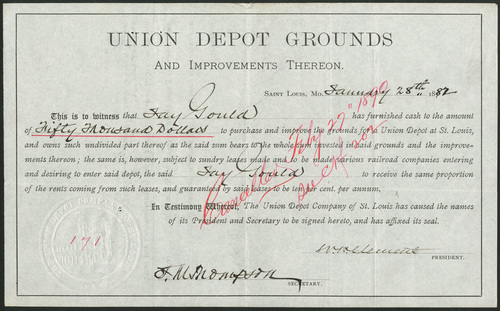 UNION DEPOT GROUNDS
AND IMPROVEMENTS THEREON.
SAINT LOUIS, MO. January 28th 1882
This is to witness that Jay Gould has furnished cash to the amount
of Fifty Thousand Dollars to purchase and improve the grounds for a Union Depot at St. Louis,
and owns such undivided part thereof as the said sum bears to the whole sum invested in said grounds and the improve-
ments thereon; the same is, however, subject to sundry leases made and to be made various railroad companies entering
and desiring to enter said depot, the said Jay Gould to receive the same proportion
of the rents coming from such leases, and guaranteed by said leases to be ten per cent. per annum.
In Testimony Whereof, The Union Depot Company of St. Louis has caused the names
of its President and Secretary to be signed hereto, and has affixed its seal.
Cancelled Feby 27" 1890
171
PRESIDENT.
SECRETARY.